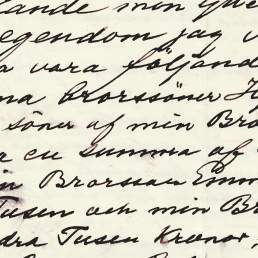 min
egendom jag
vara följand
na brorssöner
söner af min Bro
en summa af
in Brorsson Emm
Tusen och min Br
dra Tusen Kronor,